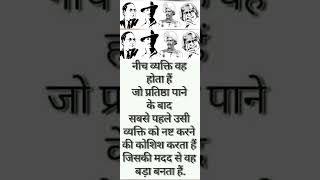 नीच व्यक्ति वह
होता हैं
जो प्रतिष्ठा पाने
के बाद
सबसे पहले उसी
व्यक्ति को नष्ट करने
की कोशिश करता हैं
जिसकी मदद से वह
बड़ा बनता हैं.